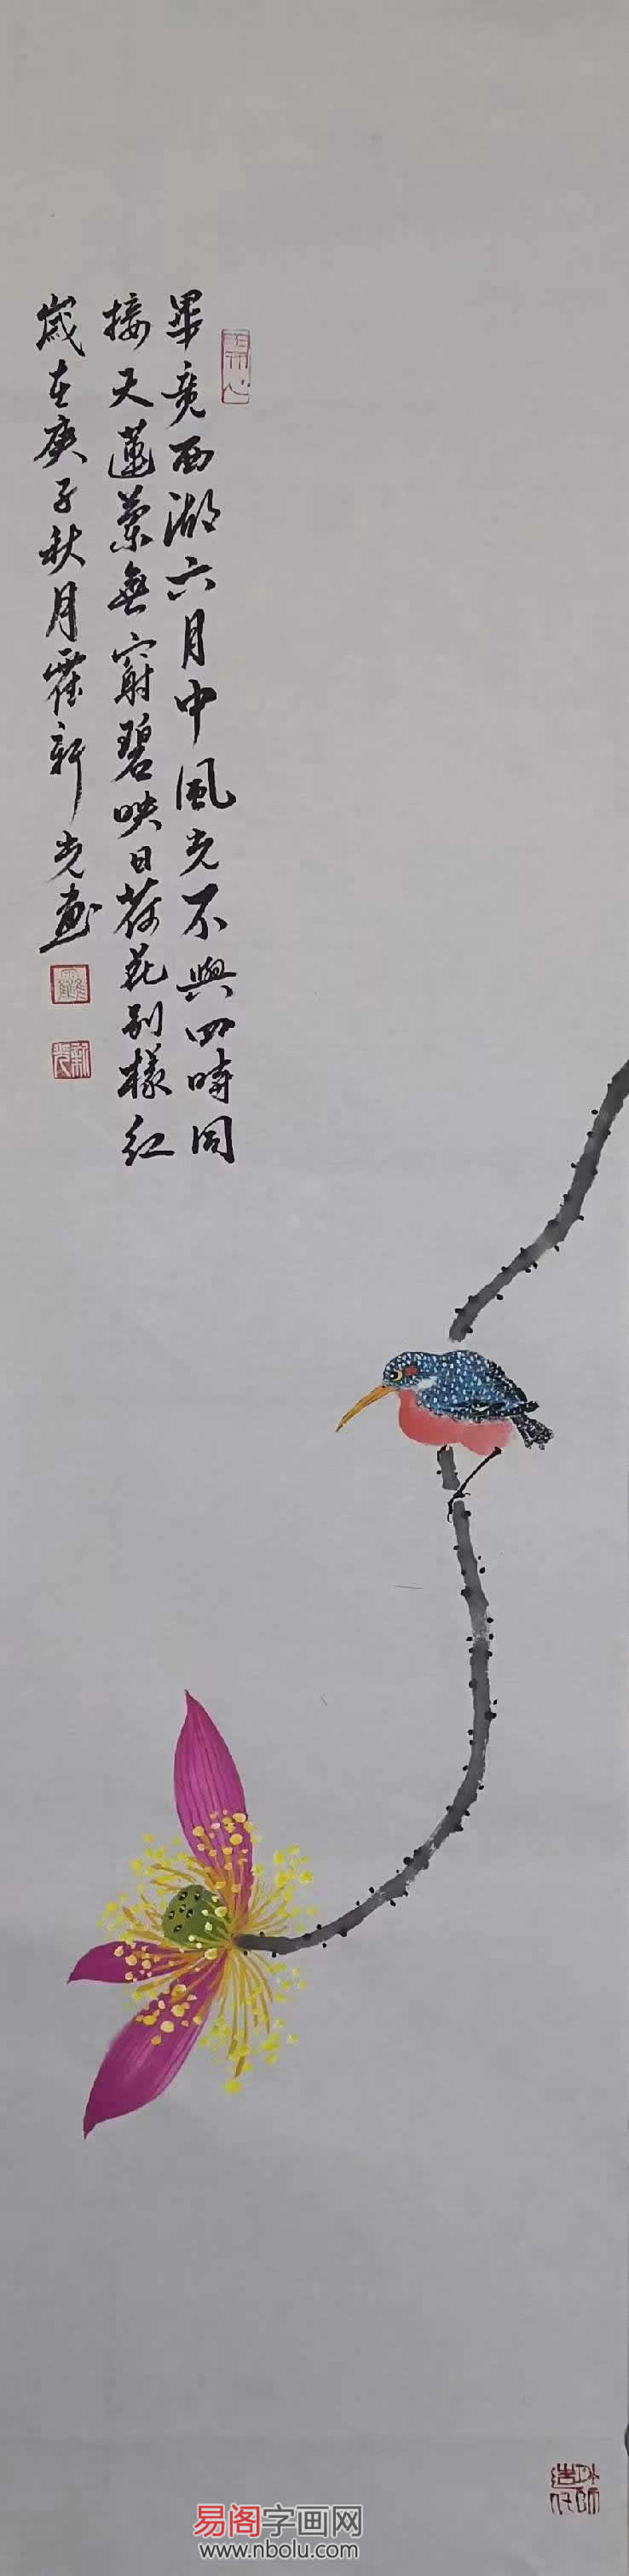 畢竟西湖六月中風光不與四時同
接天蓮葉無窮碧映日荷花別樣紅
歲在庚子秋月霍新光画
新光
外師造化
易阁字画网
www.nbolu.com